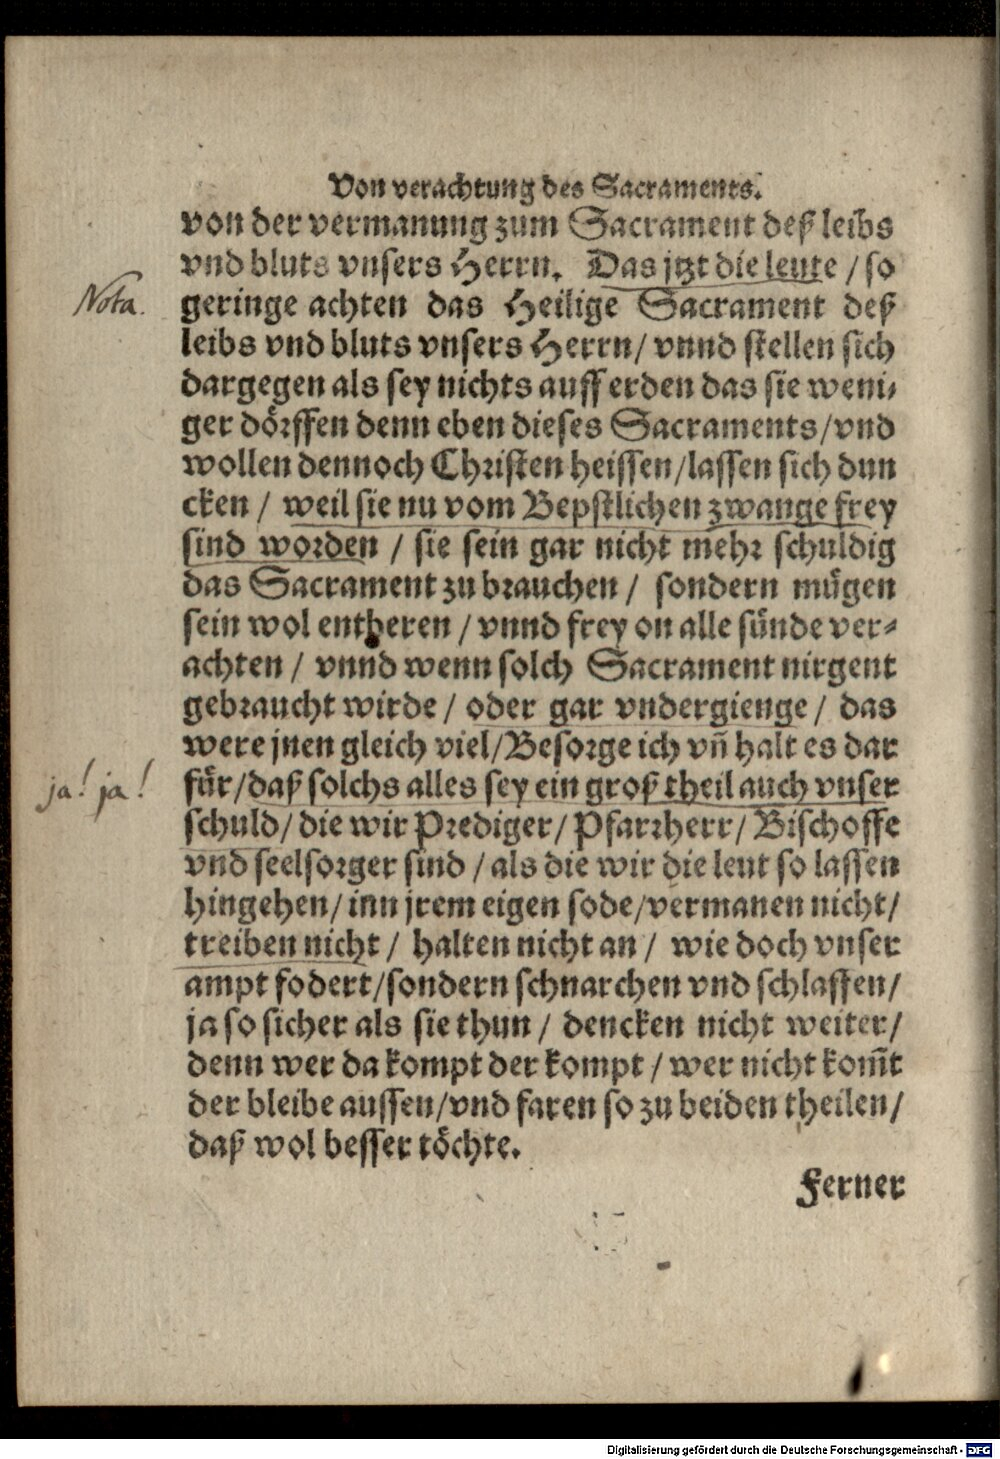 Von verachtung des Sacraments.
von der vermanung zum Sacrament deß leibs
vnd bluts vnsers Herrn. Das jtzt die leute / so
Nota. geringe achten das Heilige Sacrament deß
leibs vnd bluts vnsers Herrn/ vnnd stellen sich
dargegen als sey nichts auff erden das sie weni-
ger dörffen denn eben dieses Sacraments/vnd
wollen dennoch Christen heissen/lassen sich dun
cken / weil sie nu vom Bepstlichen zwange frey
sind worden / sie sein gar nicht mehr schuldig
das Sacrament zu brauchen / sondern mügen
sein wol entberen / vnnd frey on alle sünde ver-
achten / vnnd wenn solch Sacrament nirgent
gebraucht wirde / oder gar vndergienge / das
were jnen gleich viel/Besorge ich vñ halt es dar
ja! ja! für/daß solchs alles sey ein groß theil auch vnser
schuld/ die wir Prediger/ Pfarrherr/ Bischoffe
vnd seelsorger sind / als die wir die leut so lassen
hingehen/ inn jrem eigen sode/vermanen nicht/
treiben nicht / halten nicht an / wie doch vnser
ampt fodert/sondern schnarchen vnd schlaffen/
ja so sicher als sie thun / dencken nicht weiter/
denn wer da kompt der kompt / wer nicht kom̃t
der bleibe aussen/vnd faren so zu beiden theilen/
daß wol besser töchte.
Ferner
Digitalisierung gefördert durch die Deutsche Forschungsgemeinschaft - DFG